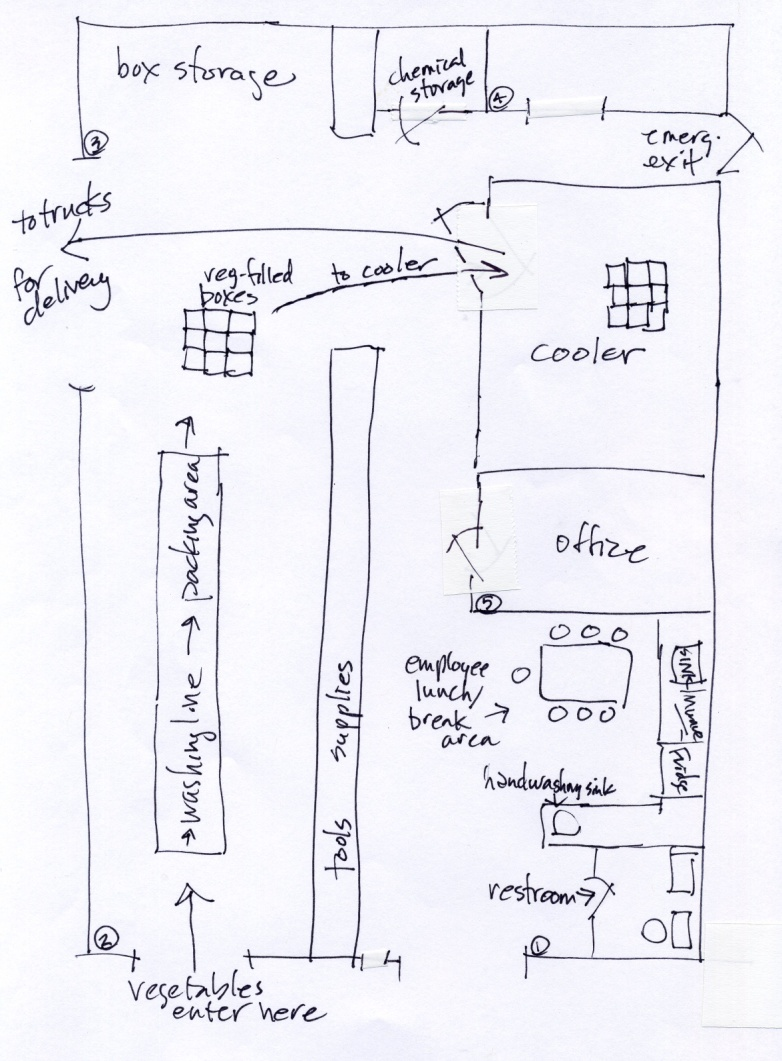 box storage
chemical
storage
4
3
emerg.
exit
to trucks
for
delivery
veg-filled
boxes
to cooler
cooler
→ washing line → packing area →
office
5
employee
lunch/
break
area
SINK
M.wave
Fridge
supplies
tools
handwashing sink
restroom
2
1
vegetables
enter here